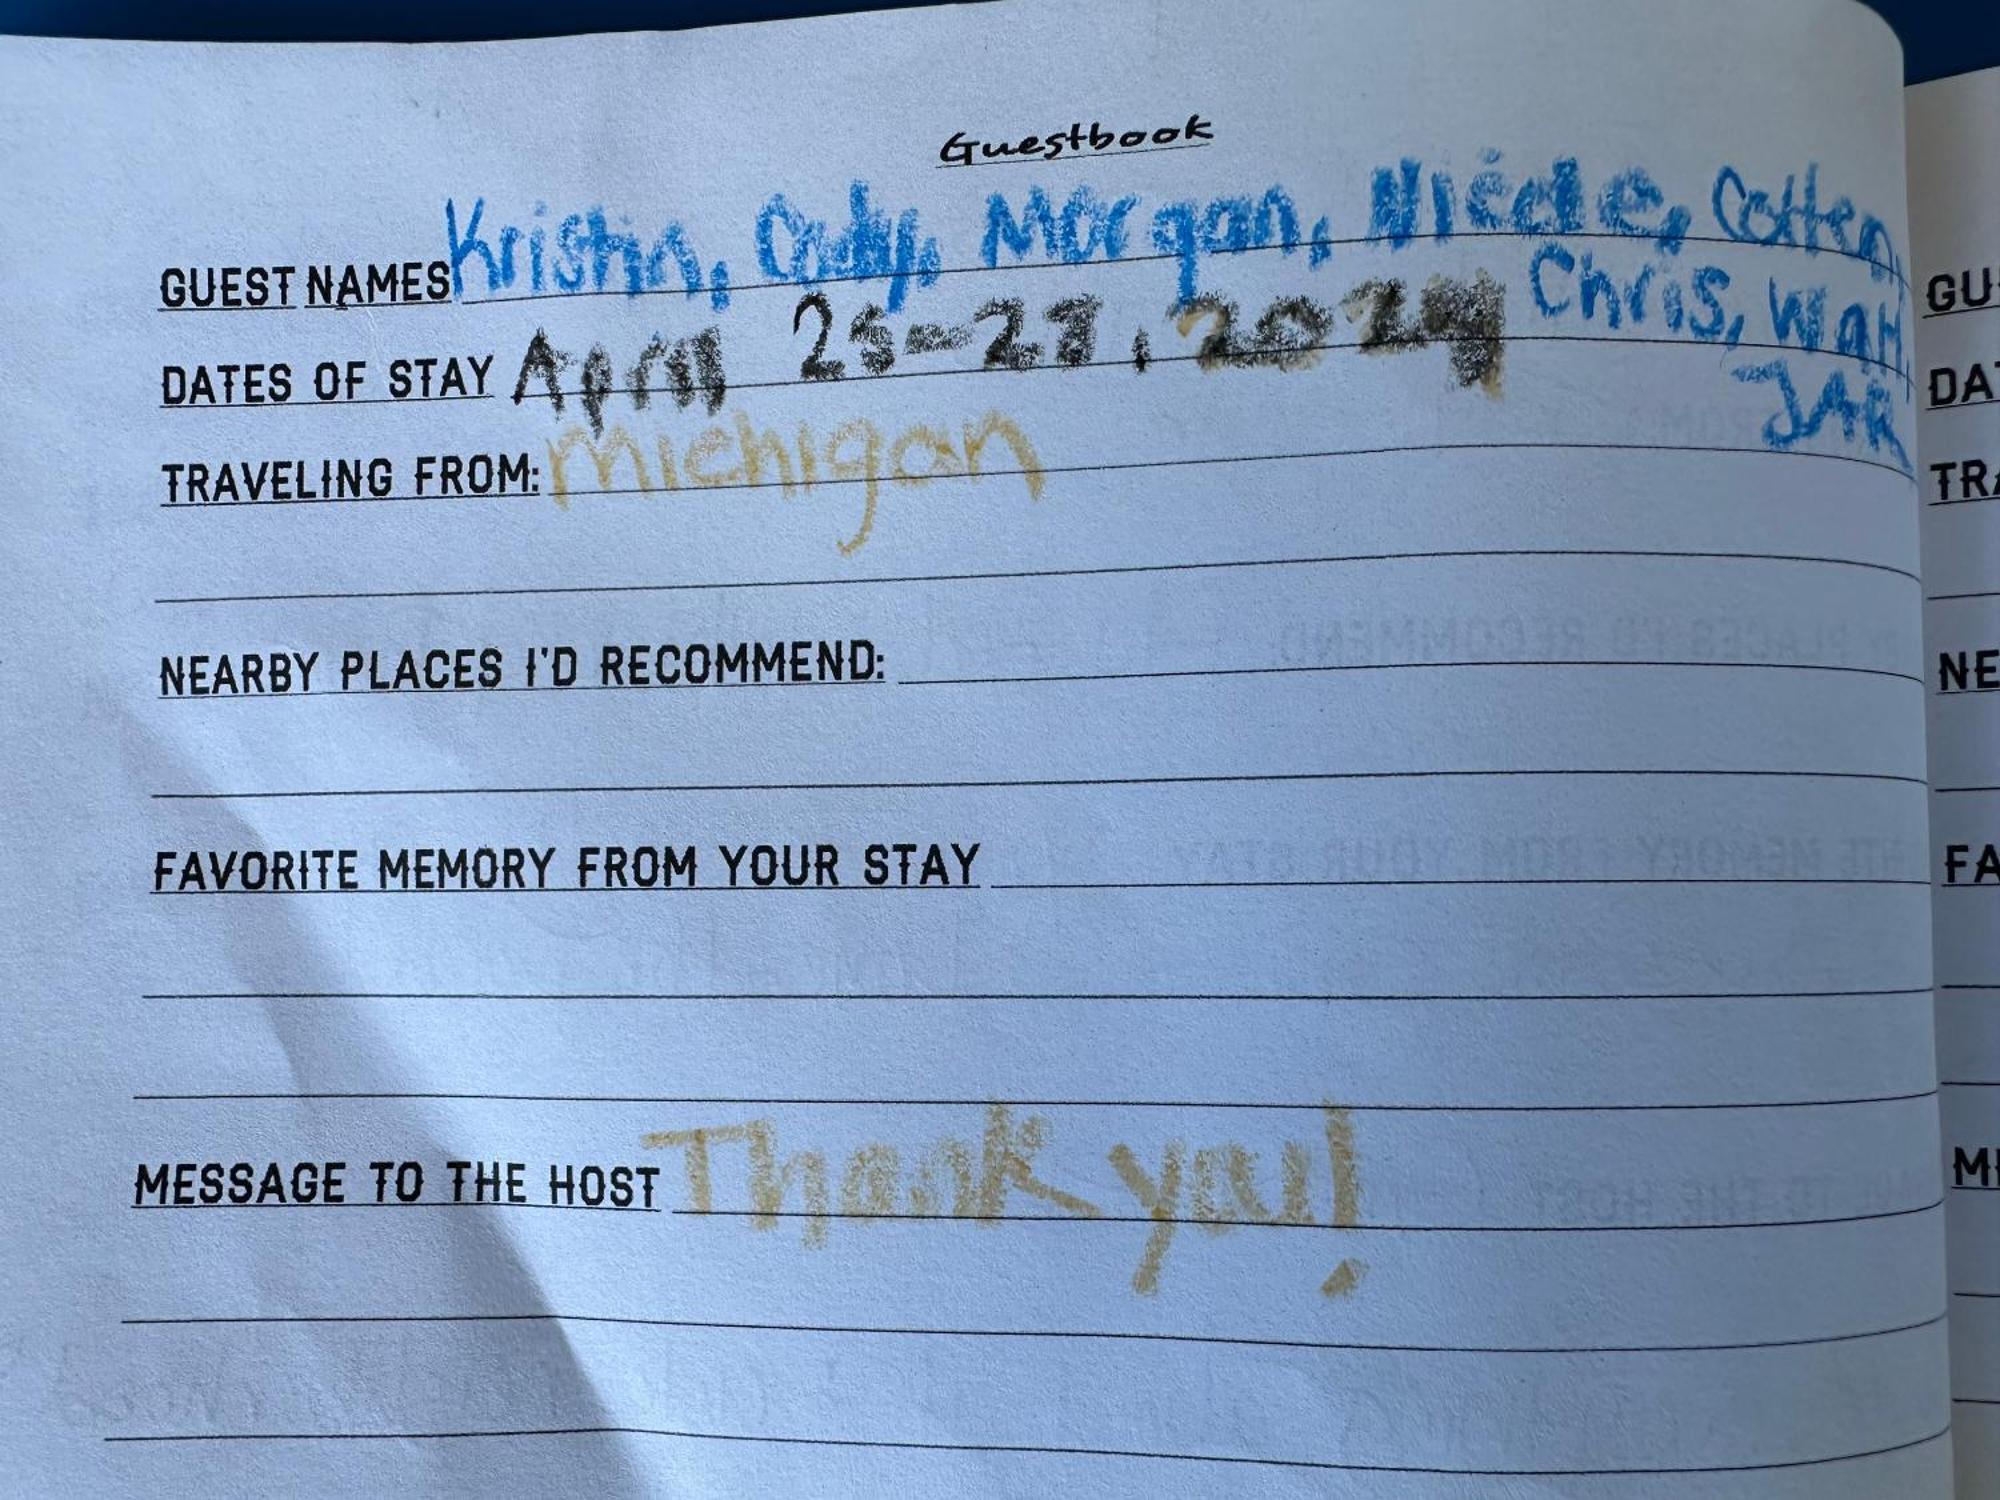 Guestbook
GUEST NAMES Kristin, Cody, Morgan, Nicole, Colten,
Chris, Walt,
JAR
DATES OF STAY April 25-27, 2024
TRAVELING FROM: michigan
NEARBY PLACES I'D RECOMMEND:
FAVORITE MEMORY FROM YOUR STAY
MESSAGE TO THE HOST Thank you!
GU
DA
TRA
NE
FA
ME